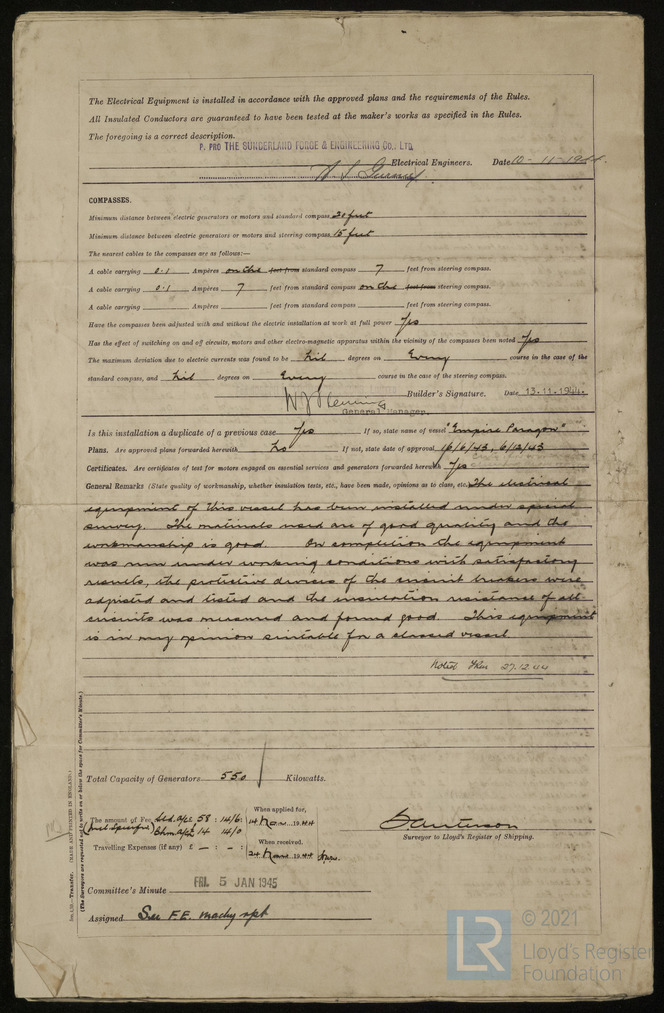 The Electrical Equipment is installed in accordance with the approved plans and the requirements of the Rules.
All Insulated Conductors are guaranteed to have been tested at the maker's works as specified in the Rules.
The foregoing is a correct description.
P. PRO THE SUNDERLAND FORGE & ENGINEERING CO., LTD.
Electrical Engineers. Date 10-11-1944.
COMPASSES.
Minimum distance between electric generators or motors and standard compass 20 feet
Minimum distance between electric generators or motors and steering compass 15 feet
The nearest cables to the compasses are as follows:—
A cable carrying 0.1 Ampères on the feet from standard compass 7 feet from steering compass.
A cable carrying 0.1 Ampères 7 feet from standard compass on the feet from steering compass.
A cable carrying Ampères feet from standard compass feet from steering compass.
Have the compasses been adjusted with and without the electric installation at work at full power Yes
Has the effect of switching on and off circuits, motors and other electro-magnetic apparatus within the vicinity of the compasses been noted Yes
The maximum deviation due to electric currents was found to be Nil degrees on Every course in the case of the
standard compass, and Nil degrees on Every course in the case of the steering compass.
Builder's Signature. Date 13-11-1944.
General Manager.
Is this installation a duplicate of a previous case Yes If so, state name of vessel "Empire Paragon"
Plans. Are approved plans forwarded herewith No If not, state date of approval 16/6/43, 6/12/43
Certificates. Are certificates of test for motors engaged on essential services and generators forwarded herewith Yes
General Remarks (State quality of workmanship, whether insulation tests, etc., have been made, opinions as to class, etc. The electrical
equipment of this vessel has been installed under special
survey. The materials used are of good quality and the
workmanship is good. On completion the equipment
was run under working conditions with satisfactory
results, the protective devices of the circuit breakers were
adjusted and tested and the insulation resistance of all
circuits was measured and found good. This equipment
is in my opinion suitable for a classed vessel
Noted 27.12.44
Total Capacity of Generators 550 Kilowatts.
The amount of Fee 58 : 14/6 When applied for,
14 14/0 14 Nov 1944
Travelling Expenses (if any) £ — : — : When received,
24 Nov 1944
Surveyor to Lloyd's Register of Shipping.
Committee's Minute FRI. 5 JAN 1945
Assigned See F.E. machy rpt
Transfer. (MADE AND PRINTED IN ENGLAND.)
(The Surveyors are requested not to write on or below the space for Committee's Minute.)
LR
© 2021
Lloyd's Register
Foundation